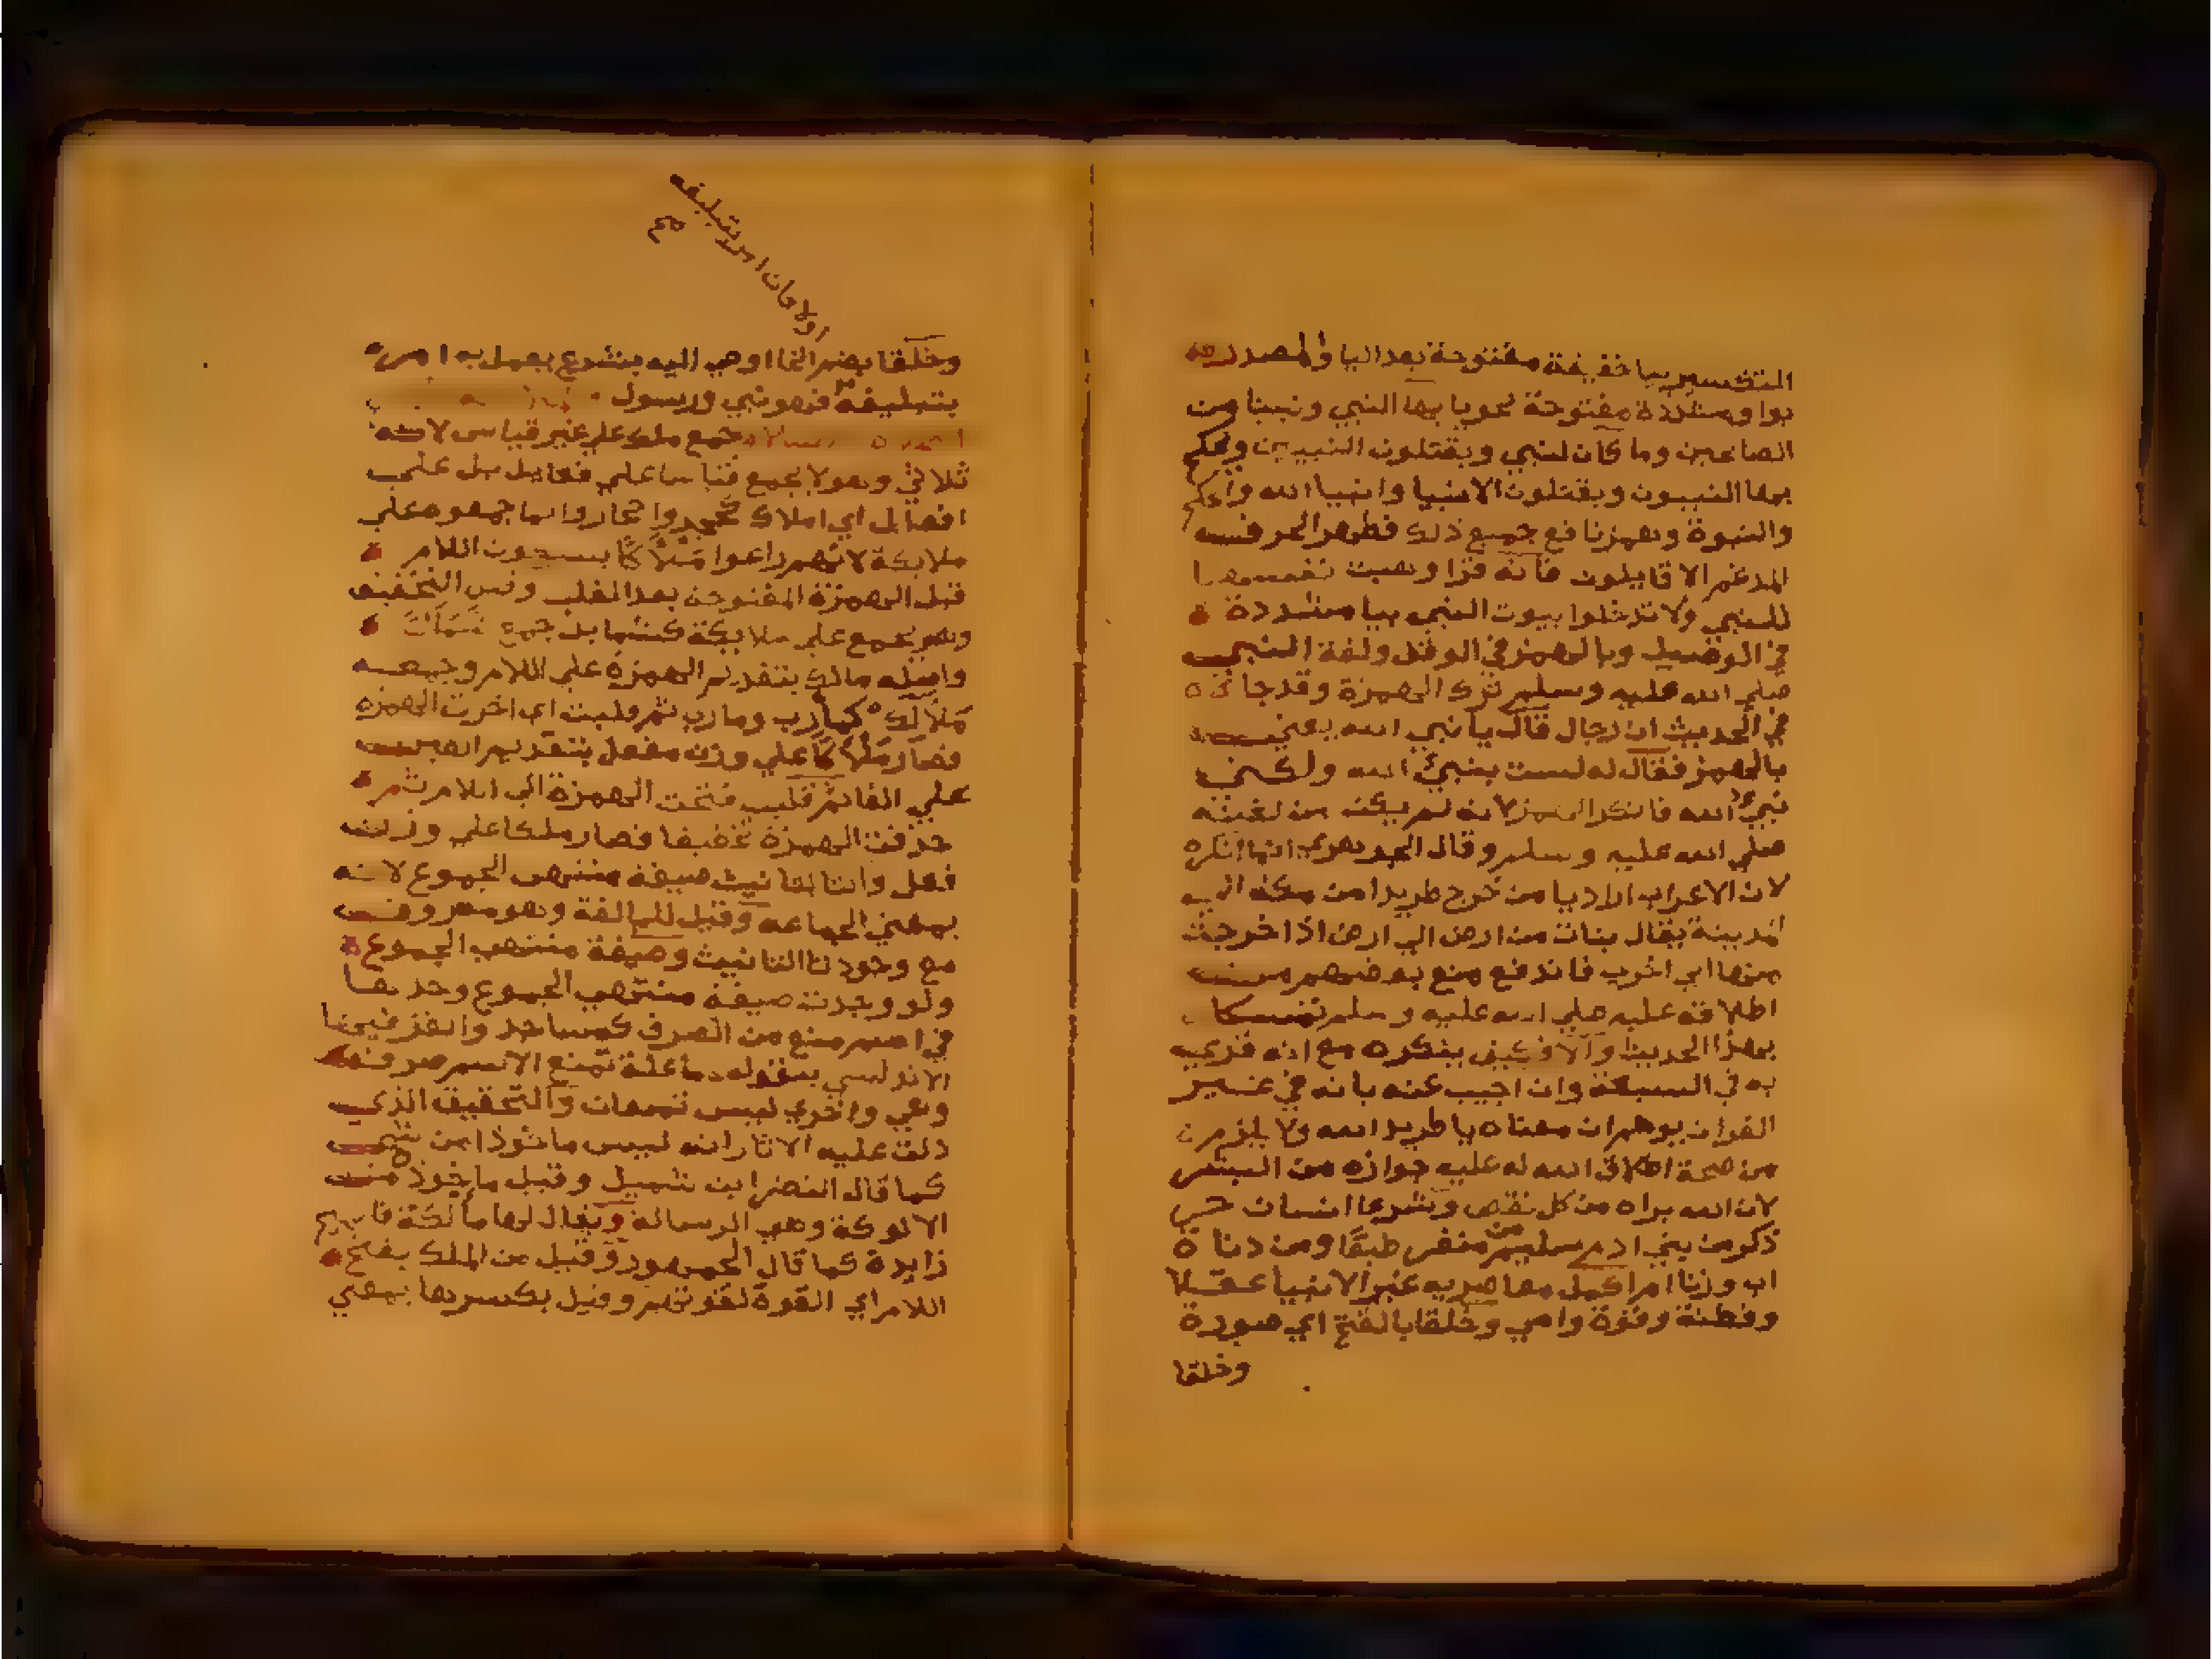 التكسير بيا خفيفة مفتوحة بعد اليا والمصدر
بوا ومشددة مفتوحة نحو يا يها النبي ونبينا ومن
الصالحين وما كان لنبي ويقتلون النبيين
بها النبيون ويقتلون الانبيا وانبيا الله
والنبوة وهمزنا فع جميع ذلك
المدغم الا قالون فانه قرا وهبت نفسها
للنبي ولا تدخلوا بيوت النبي بيا مشددة
في الوصل وبالهمز في الوقف ولغة النبي
صلي الله عليه وسلم ترك الهمزة وقد جا
في الحديث ان رجال قال يا نبي الله يعني
بالهمز فقال له لست بنبئ الله ولكني
نبي الله فانكر الهمز لانه لم يكن من لغته
صلي الله عليه وسلم وقال الجوهري انما انكره
لان الاعراب اراد يا من خرج طريدا من مكه الي
المدينة يقال بنات من ارض الي ارض اذا خرجت
منها الي اخري فاندفع منع بعضهم من
اطلاقه عليه صلي الله عليه وسلم تمسكا
بهذا الحديث والا فكيف ينكره مع انه قري
به في السبعة وان اجيب عنه بانه في غير
القران يوهم ان معناه يا طريد الله ولا يلزم من
من صحة اطلاق الله له عليه جوازه من البشر
لان الله براه من كل نقص وشرعا انسان حر
ذكر من بني ادم سليم من منفر طبعا ومن دناة
اب وزنا ام اكمل معاصريه غير الانبيا عقلا
وفطنة وقوة راي وخلقا بالفتح اي صورة
وخلقا
اولا وان امر بتبليغه
صح
وخلقا بضم الخا اوحي اليه بشرع يعمل به امر
بتبليغه فهو نبي ورسول
جمع ملك علي غير قياس لانه
ثلاثي وهو لا يجمع قياسا علي فعايل بل علي
افعال اي املاك وانما جمعوه علي
ملايكة لانهم راعوا ملأكا بسكون اللام
قبل الهمزة المفتوحة بعد القلب وقبل التخفيف
وهو يجمع علي ملايكة كشمايل جمع شمأل
واصله مالك بتقديم الهمزة علي اللام وجمعه
مآلك كمآرب ومارب ثم قلبت اي اخرت الهمزة
فصار ملأكا علي وزن معفل بتقديم العين
علي الفا ثم قلبت فتحت الهمزة الي اللام ثم
حذفت الهمزة تخفيفا فصار ملكا علي وزن
فعل والتا لتانيث صيغة منتهي الجموع لانه
بمعني الجماعه وقيل للمبالغة وهو مصروف
مع وجود تا التانيث وصيغة منتهي الجموع
ولو وجدت صيغة منتهي الجموع وحدها
في اسم منع من الصرف كمساجد والغز فيها
الاندلسي بقوله ما علة تمنع الاسم صرفه
وهي واخري ليس تمنعان والتحقيق الذي
دلت عليه الاثار انه ليس ماخوذا من شي
كما قال النضر ابن شميل وقيل ماخوذ من
الالوكة وهي الرسالة ويقال لها مالكة
زايدة كما قال الجمهور وقيل من الملك بفتح
اللام اي القوة لقوتهم وقيل بكسرها بمعني